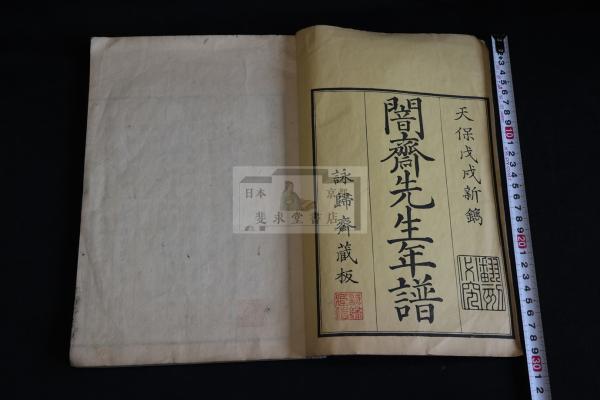 天保戊戌新鐫
闇齋先生年譜
詠歸齋蔵板
翻刻必究
日本 京都
斐求堂書店